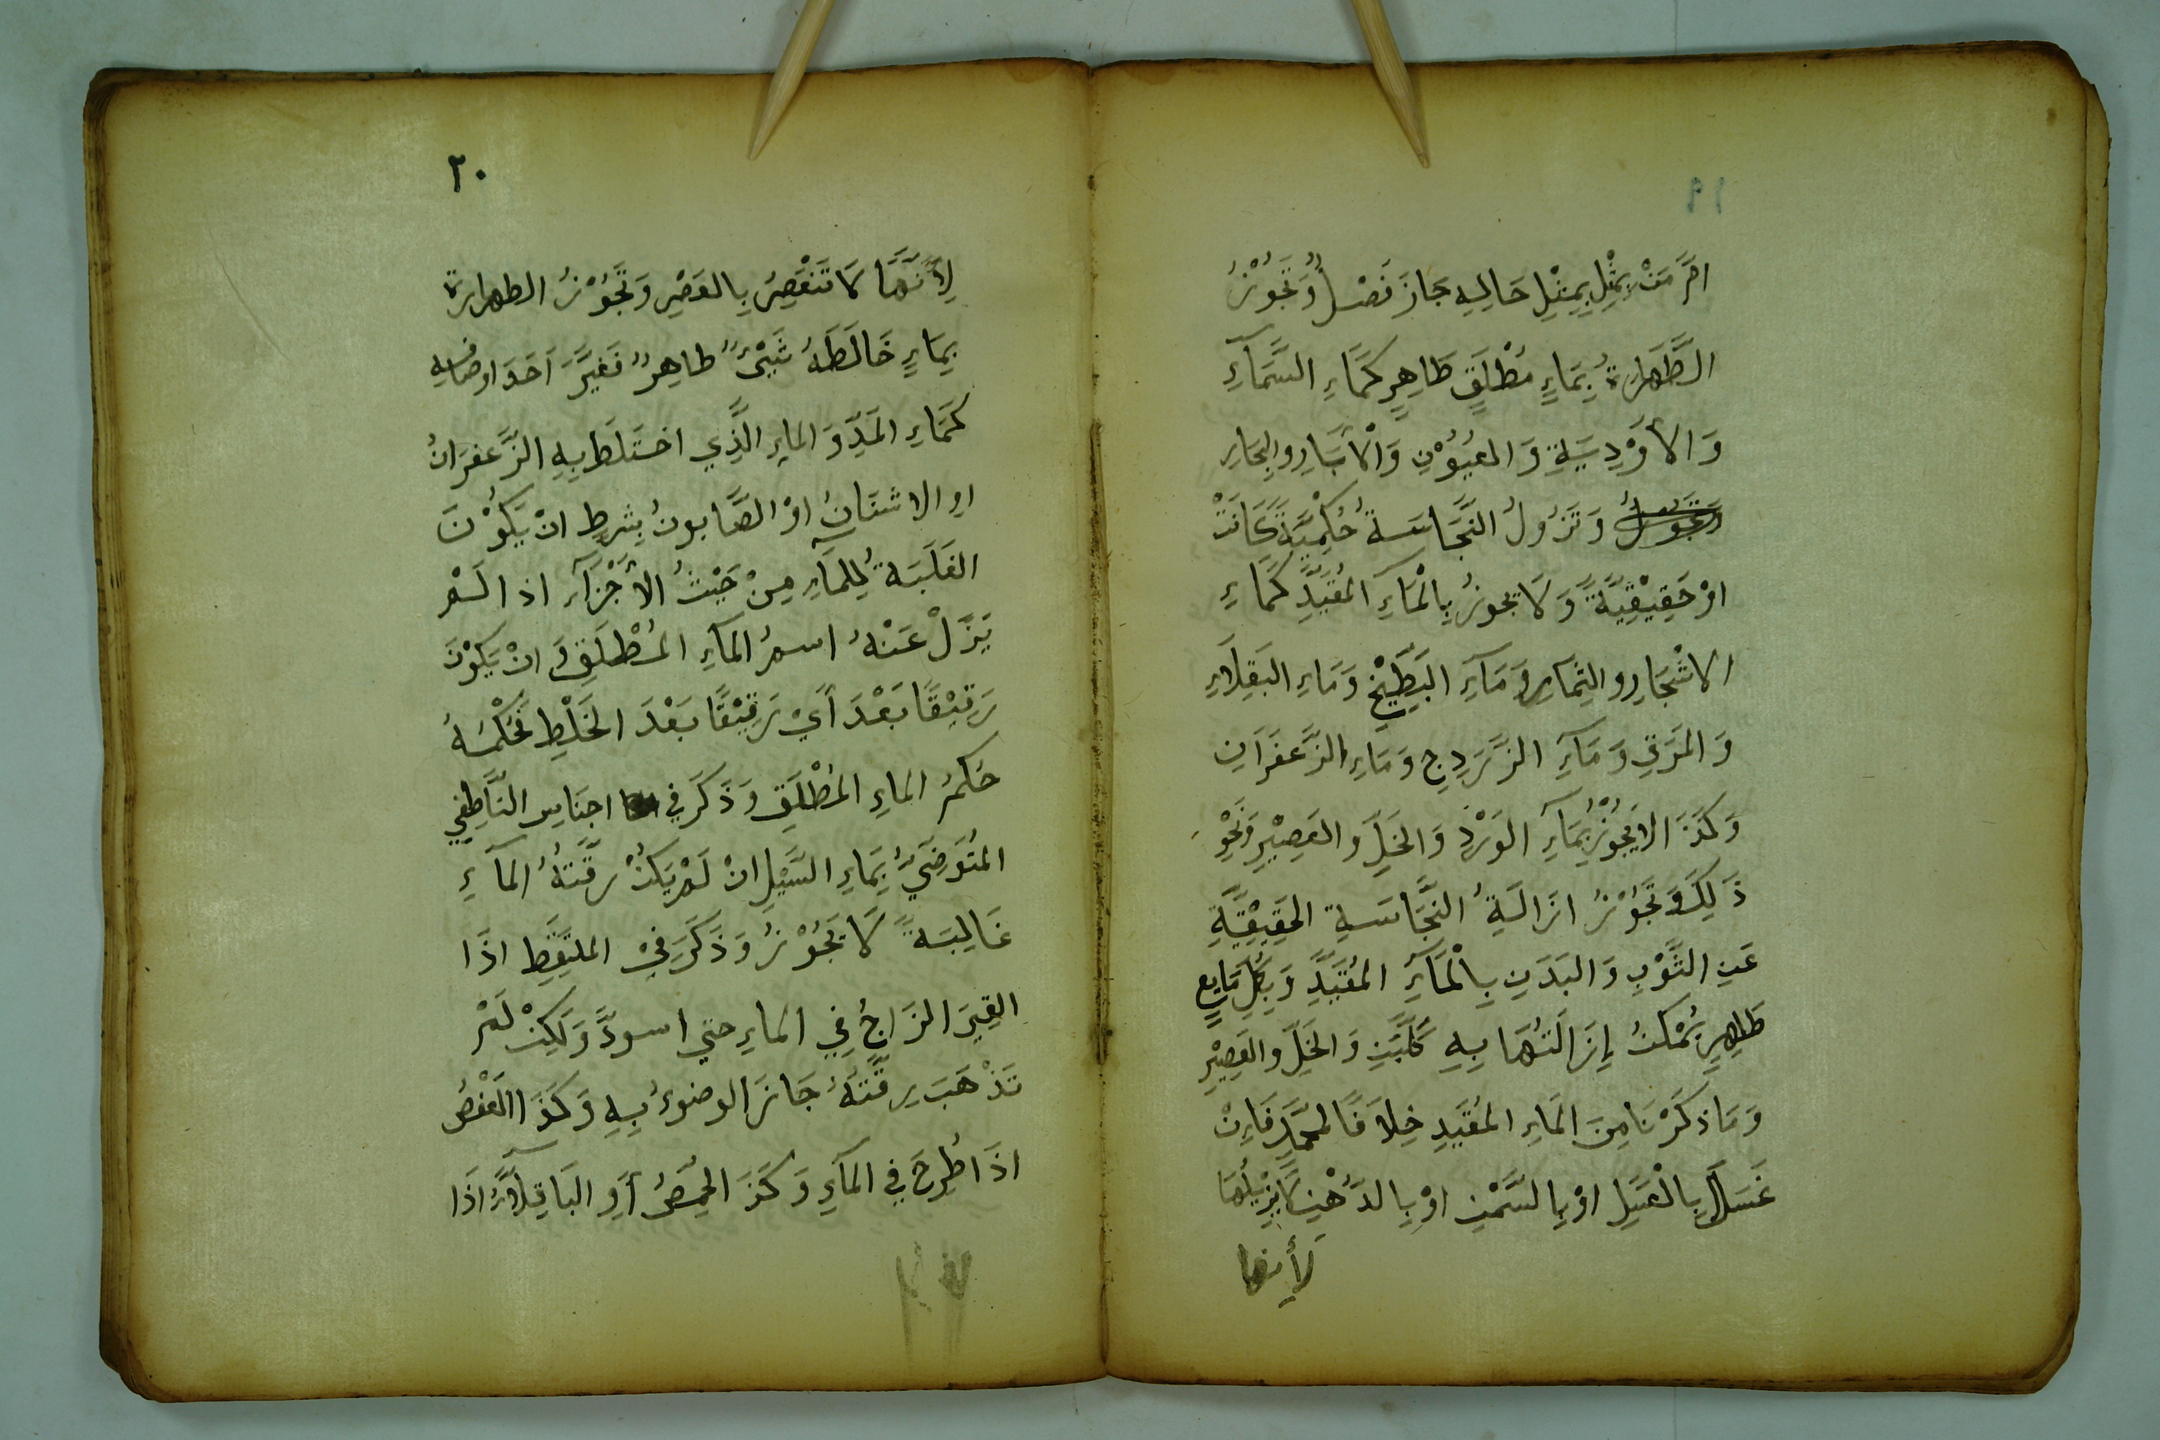 ١٩
امَّ مَنْ بِمِثْلِ بِمِثْلِ حَالِهِ جَازَ فَصْلٌ وَتَجُوْزُ
الطَّهَارَةُ بِمَاءٍ مُطْلَقٍ طَاهِرٍ كَمَاءِ السَّمَآءِ
وَالاَوْدِيَةِ وَالعُيُوْنِ وَالْاٰبَارِ والبِحَارِ
وَتَزُولُ النَّجَاسَةُ حُكْمِيَّةً كَانَتْ
اوْ حَقِيْقِيَّةً وَلَا يجوزُ بِالْمَآءِ المُقَيَّدِ كَمَاءِ
الاشْجَارِ والثِمَارِ وَمَآءِ البِطِّيْخِ وَمَاءِ البَقِلَاءِ
وَالمَرَقِ وَمَآءِ الزَّرَدِجِ وَمَاءِ الزَّعفَرَانِ
وَكَذَا لا يَجُوْزُ بِمَآءِ الوَرْدِ وَالخَلِّ والعَصِيْرِ وَنَحْوِ
ذَلِكَ وَتَجُوْزُ ازَالَةُ النَّجَاسَةِ الحَقِيْقِيَّةِ
عَنِ الثَّوْبِ وَالبَدَنِ بِالْمَآءِ المُقَيَّدِ وَبِكُلِّ مَايِعٍ
طَاهِرٍ يُمْكنُ اِزَالَتُهَا بِهِ كَلَبَنِ وَالخَلِّ والعَصِيْرِ
وَمَا ذكَرْنَا مِنَ المَاءِ المُقَيَدِ خِلَافًا لمحَمَّدِ فَاِنْ
غَسَلَ بِالْعَسَلِ اوْ بِالسَّمْنِ اوْ بِالدُّهْنِ لَا يُزِيْلُهَا
لأنها
٢٠
لِاَنَّهَا لَا تَنْعَصِرُ بِالعَصْرِ وَتَجُوْزُ الطهارة
بِمَاءٍ خَالَطَهُ شَيْئٌ طاهِرٌ فَغَيَّرَ اَحَدَ اوصَافِهِ
كَمَاءِ المَدِّ وَالماءِ الَّذِي اختَلَطَ بِهِ الزَّعفرَانُ
اوِ الاشنَانُ اوْ الصَّابونُ بِشرطِ انْ يَكُوْنَ
الغَلَبَةُ لِلمَآءِ مِنْ حَيْثُ الاَجْزَآءِ اذا لَمْ
يَزَلْ عَنْهُ اسمُ المَآءِ المُطْلَقِ وَ انْ يَكُوْنَ
رَقِيْقًا بَعْدَ أَيْ رَقِيْقًا بَعْدَ الخَلْطِ فَحُكْمُهُ
حُكمُ الماءِ المُطْلَقِ وَذَكَرَ في اجنَاسِ النَّاطِفِي
المتُوَضِيُّ بِمَاءِ السَّيْلِ انْ لَمْ يَكُنْ رِقَّتُهُ المآءِ
غَالِبَةً لَا يَجُوْزُ وَذَكَرَ فِيْ الملتَقَطِ اذَا
القِيَ الزَاجُ فِي الماءِ حتي اسودَّ وَلَكِنْ لَمْ
تَذْهَبَ رِقَّتَهُ جَازَ الوضوءُ بِهِ وَكَذَا العَفْصُ
اذَا طُرِحَ فِي المَآءِ وَكَذَ الحِمَصُ أَوِ البَاقِلَآءُ اذَا